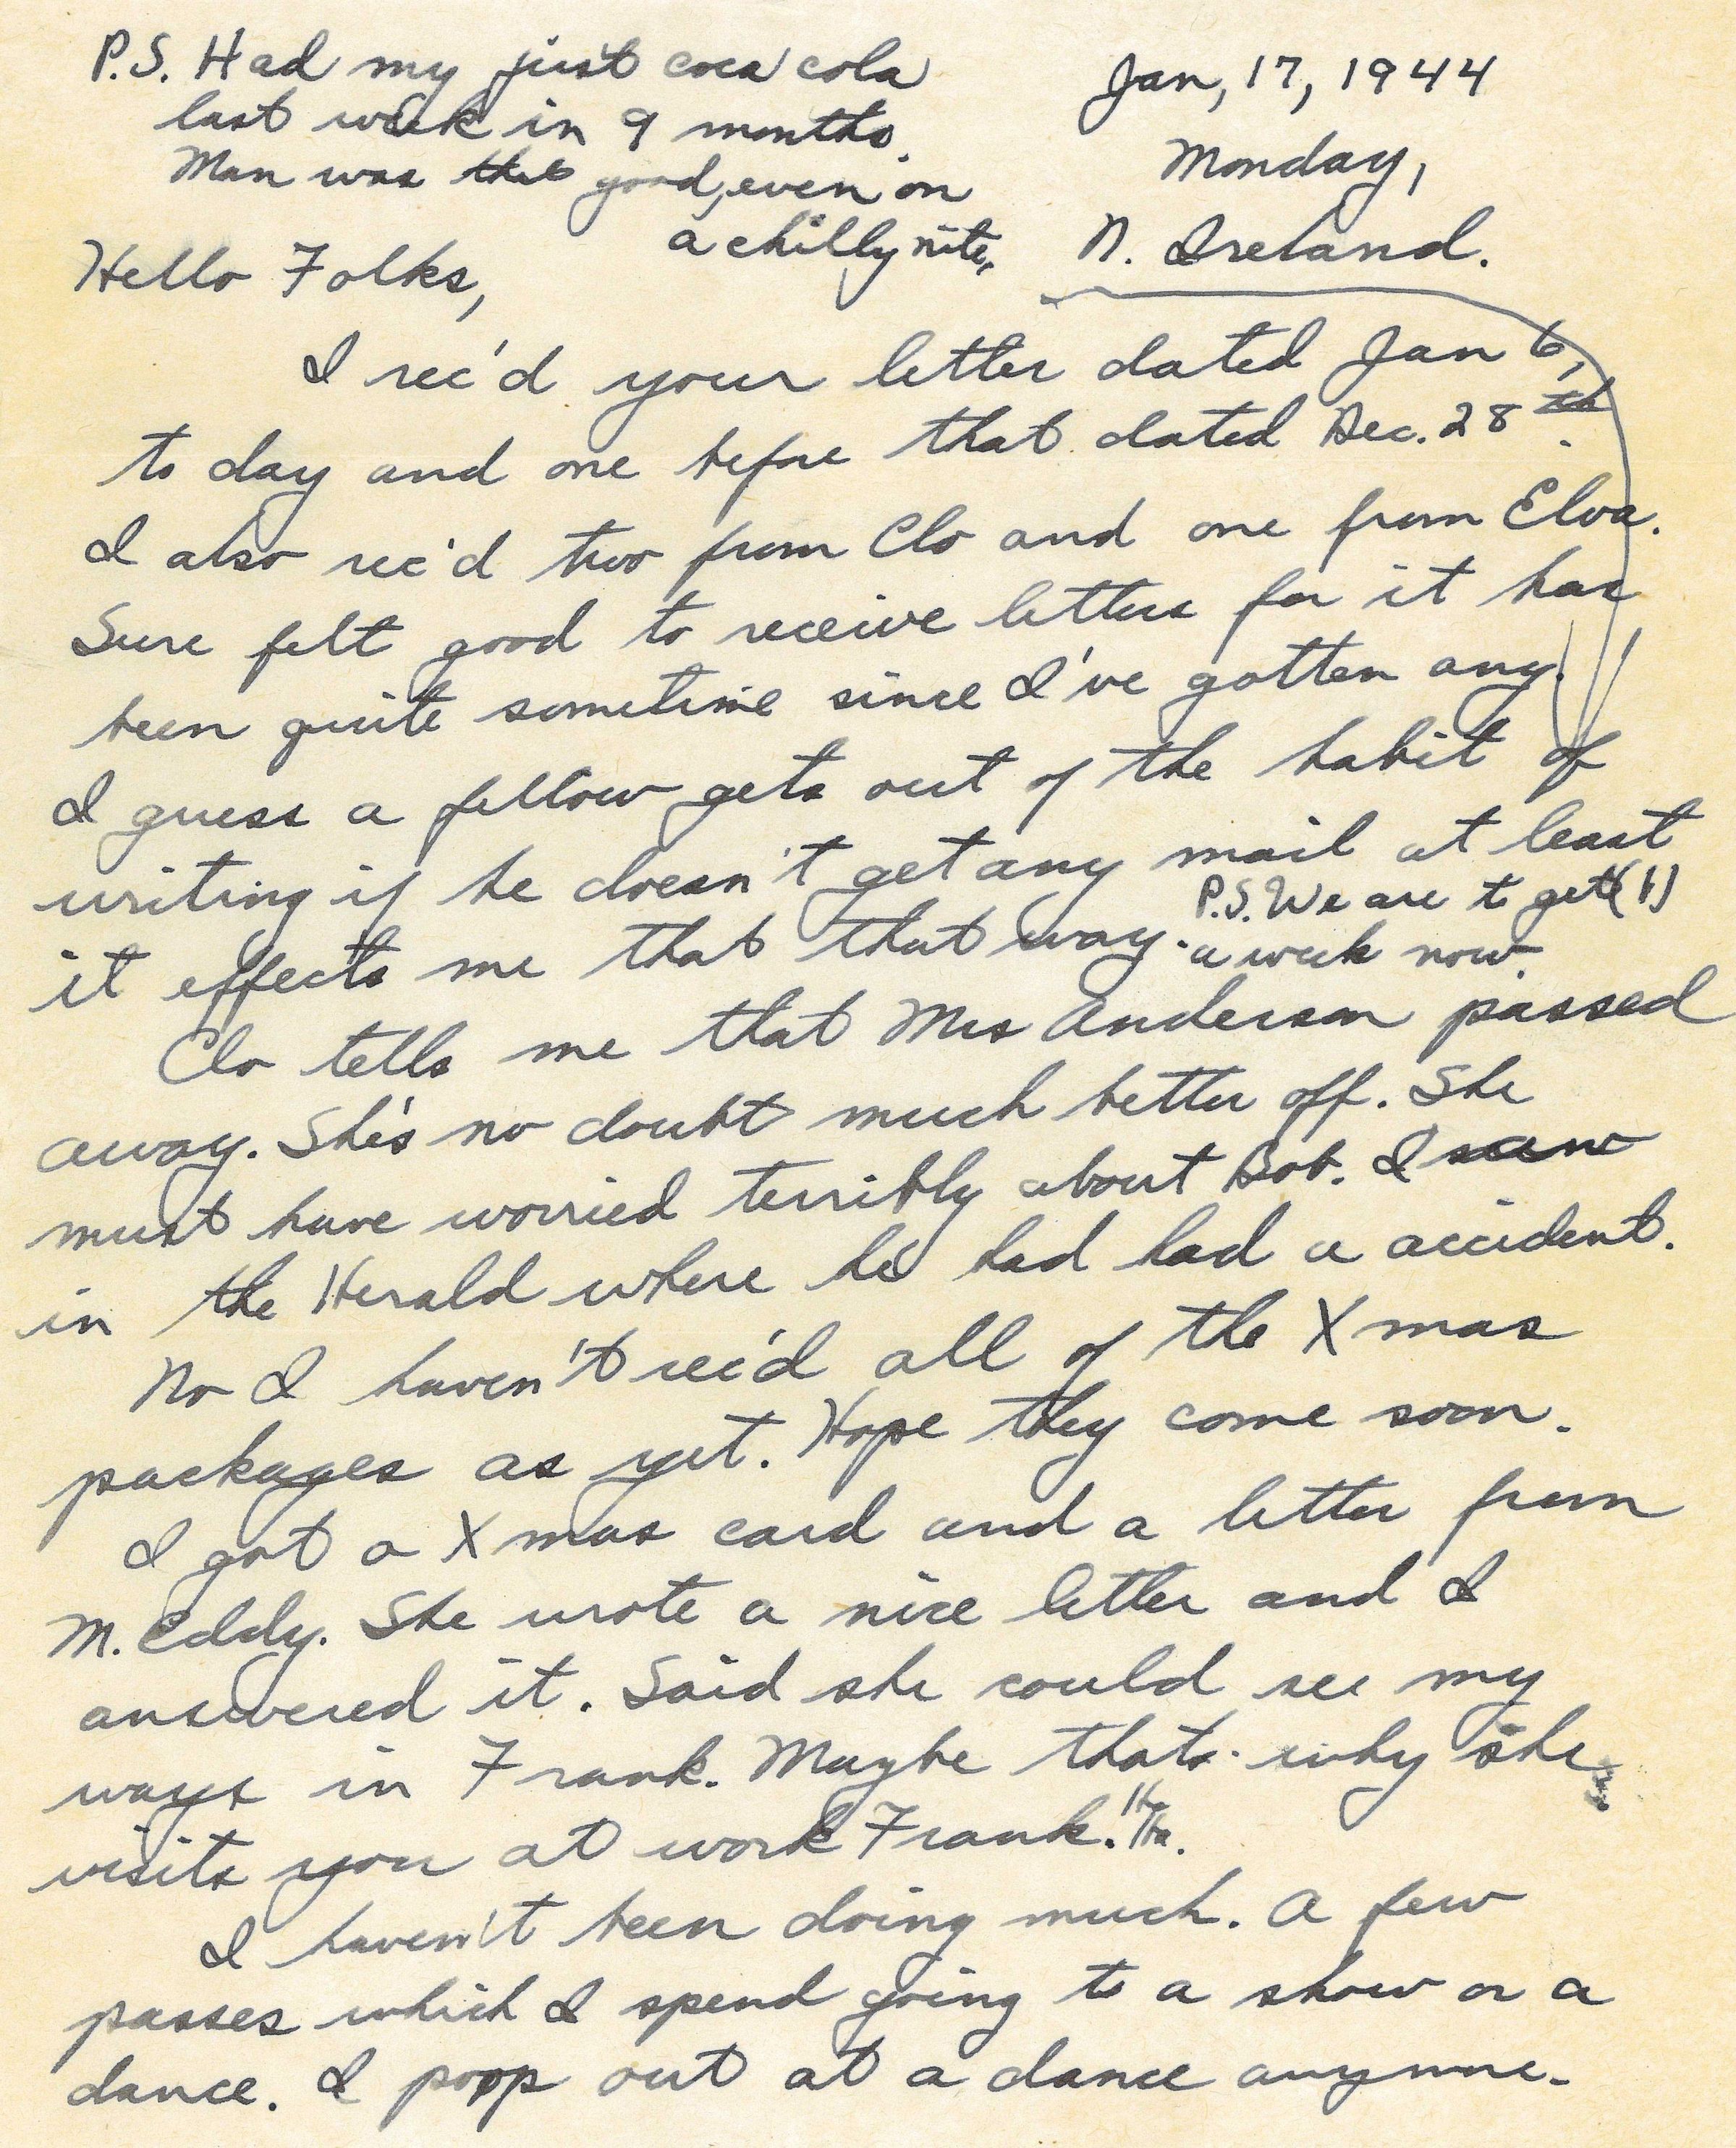 P.S. Had my just coca cola
last week in 9 months.
Man was that good, even on
a chilly nite.
Jan, 17, 1944
Monday,
N. Ireland.
Hello Folks,
I rec'd your letter dated Jan 6,
to day and one before that dated Dec. 28th.
I also rec'd two from Clo and one from Elva.
Sure felt good to receive letters for it has
been quite sometime since I've gotten any.
I guess a fellow gets out of the habit of
writing if he doesn't get any mail at least
it effects me that that way.
P.S. We are to get (1)
a week now.
Clo tells me that Mrs Anderson passed
away. She's no doubt much better off. She
must have worried terribly about Bob. I saw
in the Herald where he had had a accident.
No I haven't rec'd all of the Xmas
packages as yet. Hope they come soon.
I got a Xmas card and a letter from
M. Eddy. She wrote a nice letter and I
answered it. Said she could see my
ways in Frank. Maybe thats why she
visits you at work Frank. Ha Ha.
I haven't been doing much. A few
passes which I spend going to a show or a
dance. I poop out at a dance anymore.